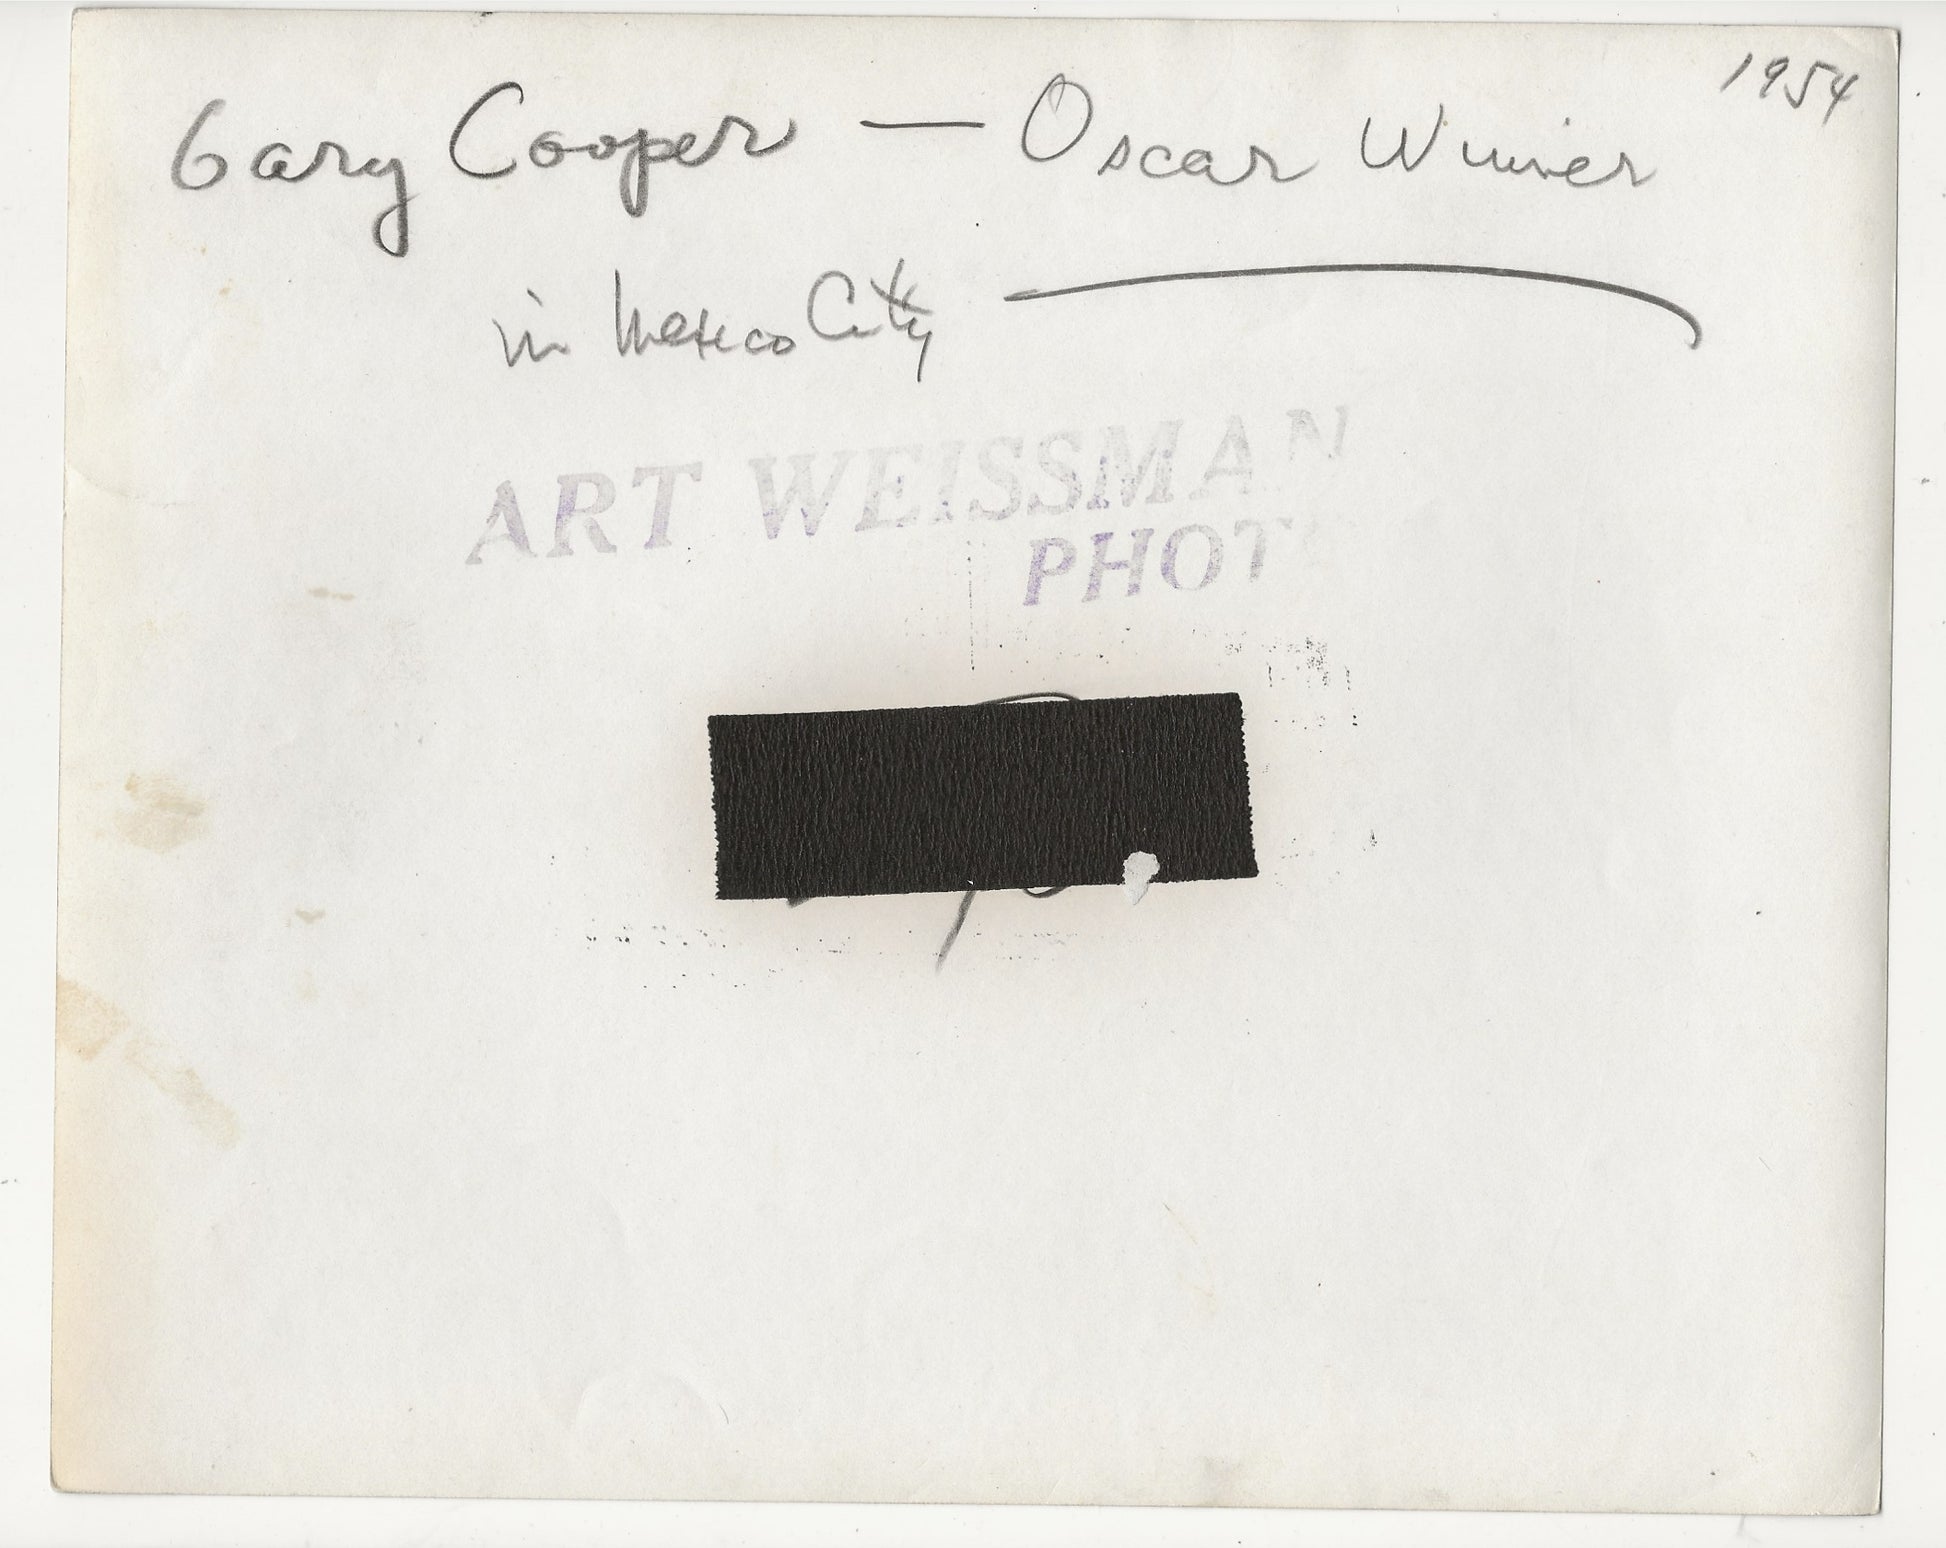 1954
Gary Cooper — Oscar Winner
in Mexico City
ART WEISSMAN
PHOT